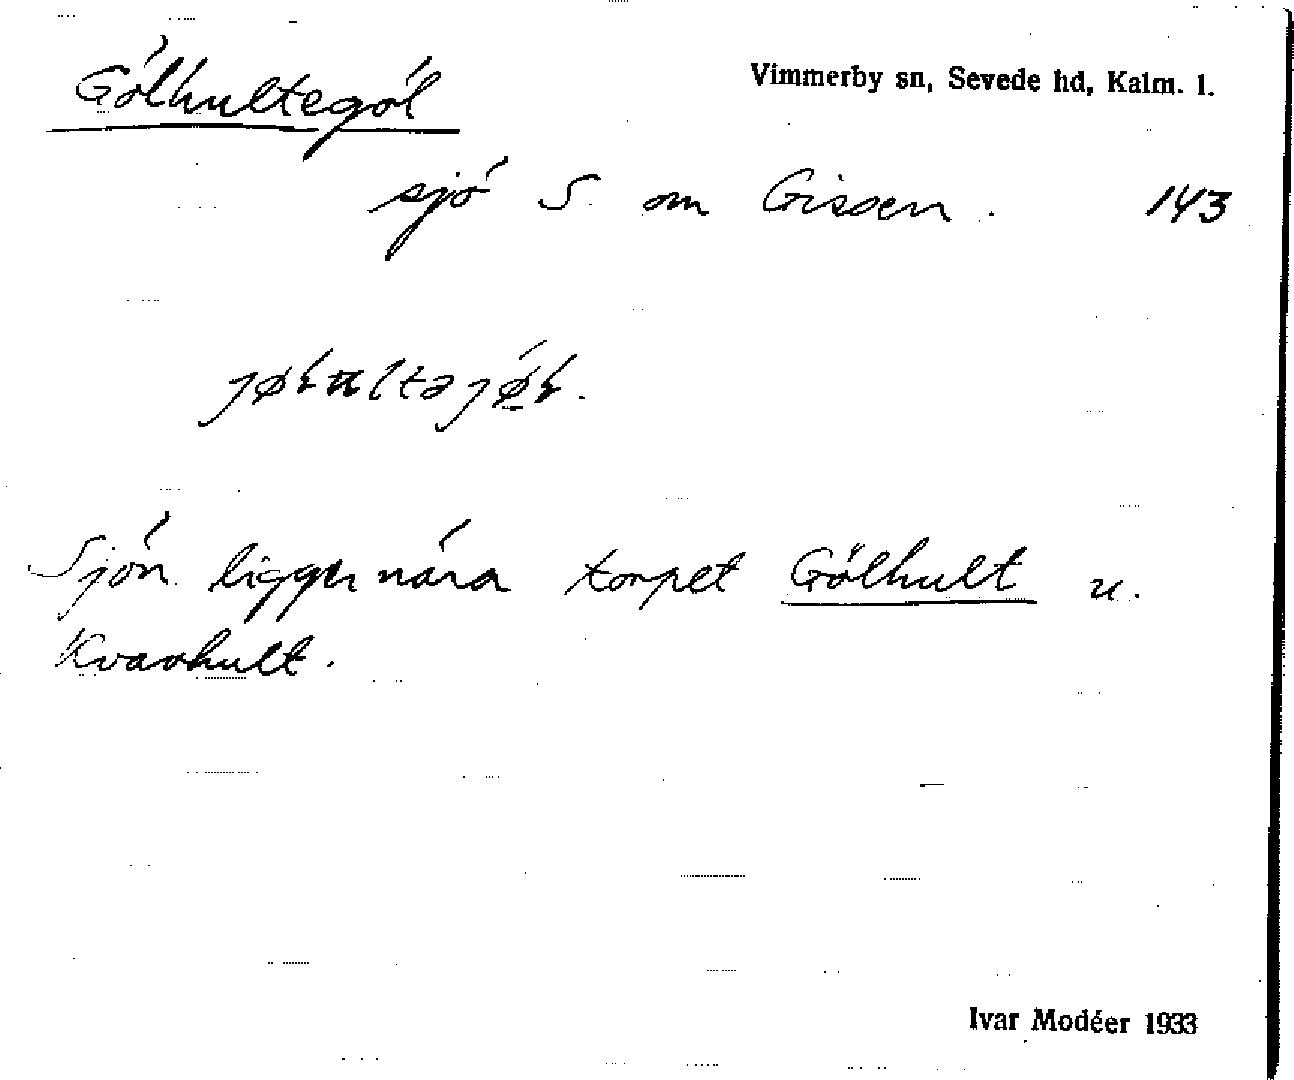 Gölhultegöl
Vimmerby sn, Sevede hd, Kalm. l.
sjö S. om Gissen. 143
Sjön ligger nära torpet Gölhult u.
Kvarhult.
Ivar Modéer 1933